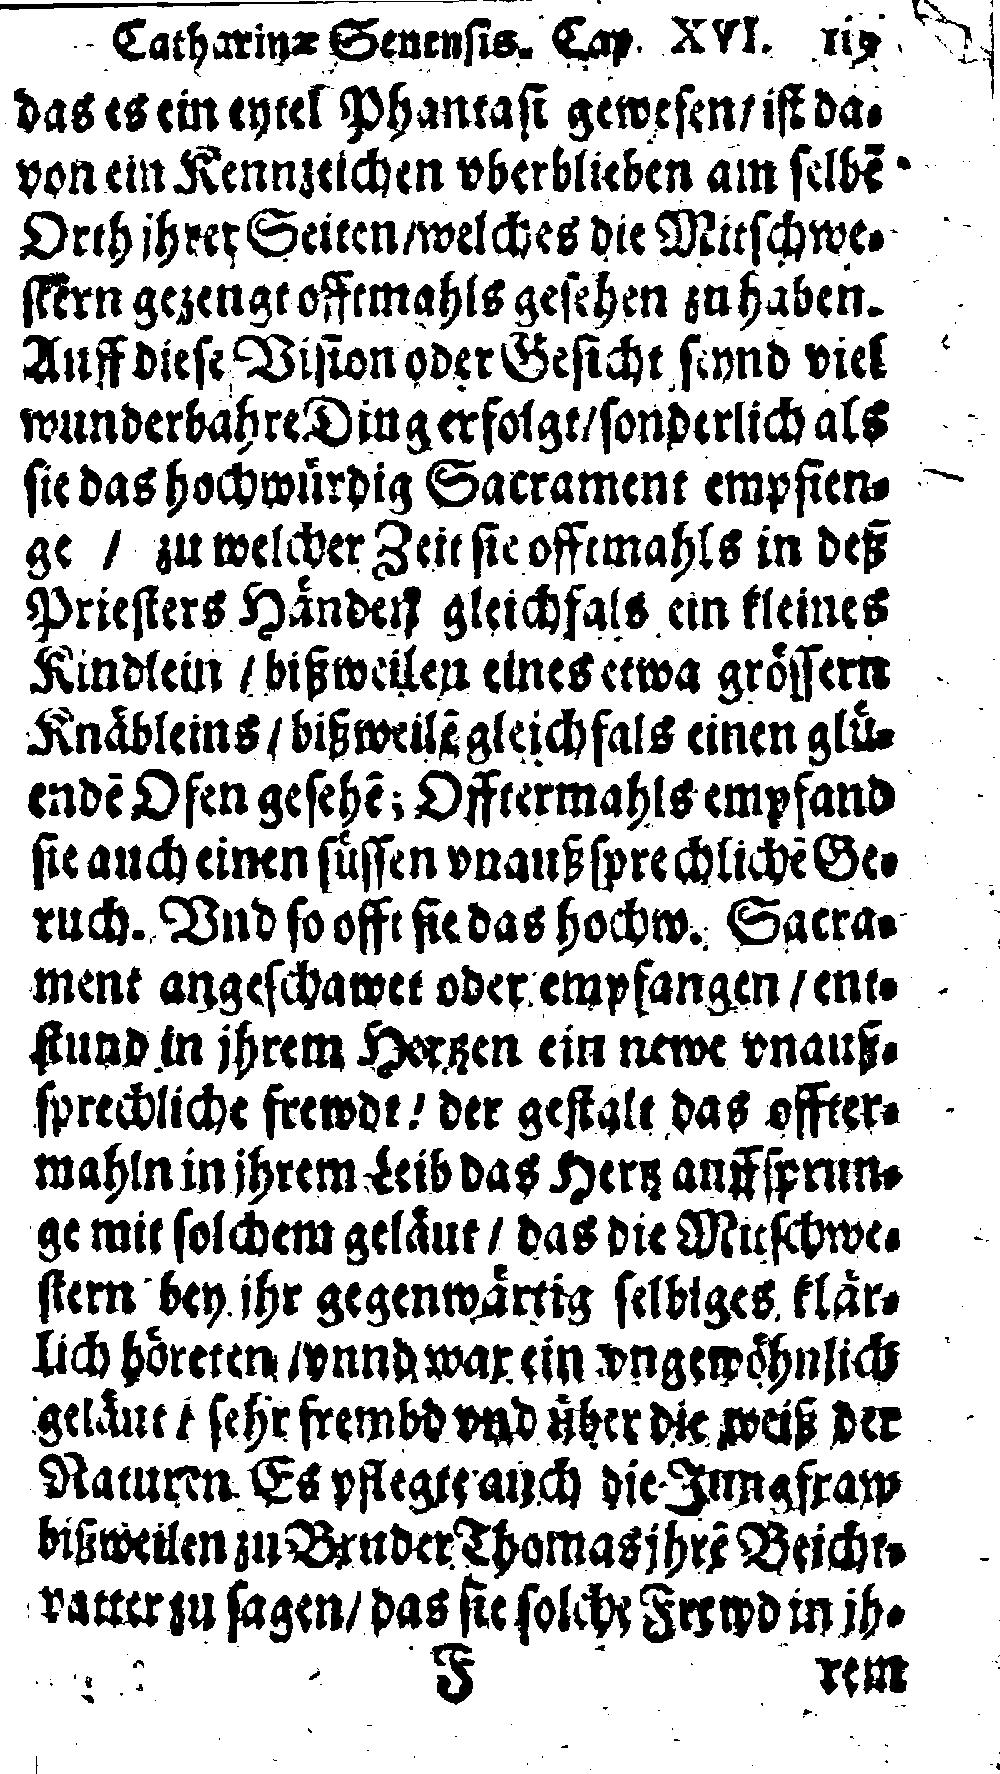 Catharinæ Senensis. Cap. XVI. 119
das es ein eytel Phantasi gewesen/ ist da-
von ein Kennzeichen vberblieben am selbē
Orth jhrer Seiten/welches die Mitschwe-
stern gezeugt offtmahls gesehen zu haben.
Auff diese Vision oder Gesicht seynd viel
wunderbahre Ding erfolgt/sonderlich als
sie das hochwürdig Sacrament empfien-
ge / zu welcher Zeit sie offtmahls in deß
Priesters Händen gleichfals ein kleines
Kindlein / bißweilen eines etwa grössern
Knäbleins / bißweilē gleichfals einen glü-
endē Ofen gesehē; Offtermahls empfand
sie auch einen süssen vnaußsprechlichē Ge-
ruch. Vnd so offt sie das hochw. Sacra-
ment angeschawet oder empfangen / ent-
stund in jhrem Hertzen ein newe vnauß-
sprechliche frewdt! der gestalt das offter-
mahln in jhrem Leib das Hertz auffsprun-
ge mit solchem geläut / das die Mitschwe-
stern bey jhr gegenwärtig selbiges klär-
lich höreten /vnnd war ein vngewöhnlich
geläut / sehr frembd vnd über die weiß der
Naturen. Es pflegte auch die Jungfraw
bißweilen zu Bruder Thomas jhrē Beicht-
vatter zu sagen/ das sie solche Frewd in jh-
F rem